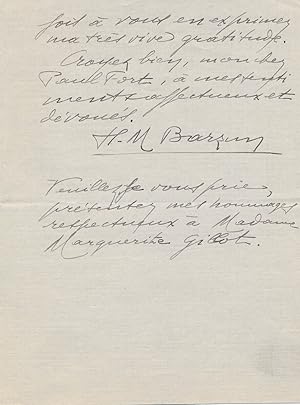 soit à vous en exprimer
ma très vive gratitude.
Croyez bien, mon cher
Paul Fort, à mes senti
ments affectueux et
dévoués.
H-M Barzun
Veuillez, je vous prie,
présentez mes hommages
respectueux à Madame
Marguerite Gillot.